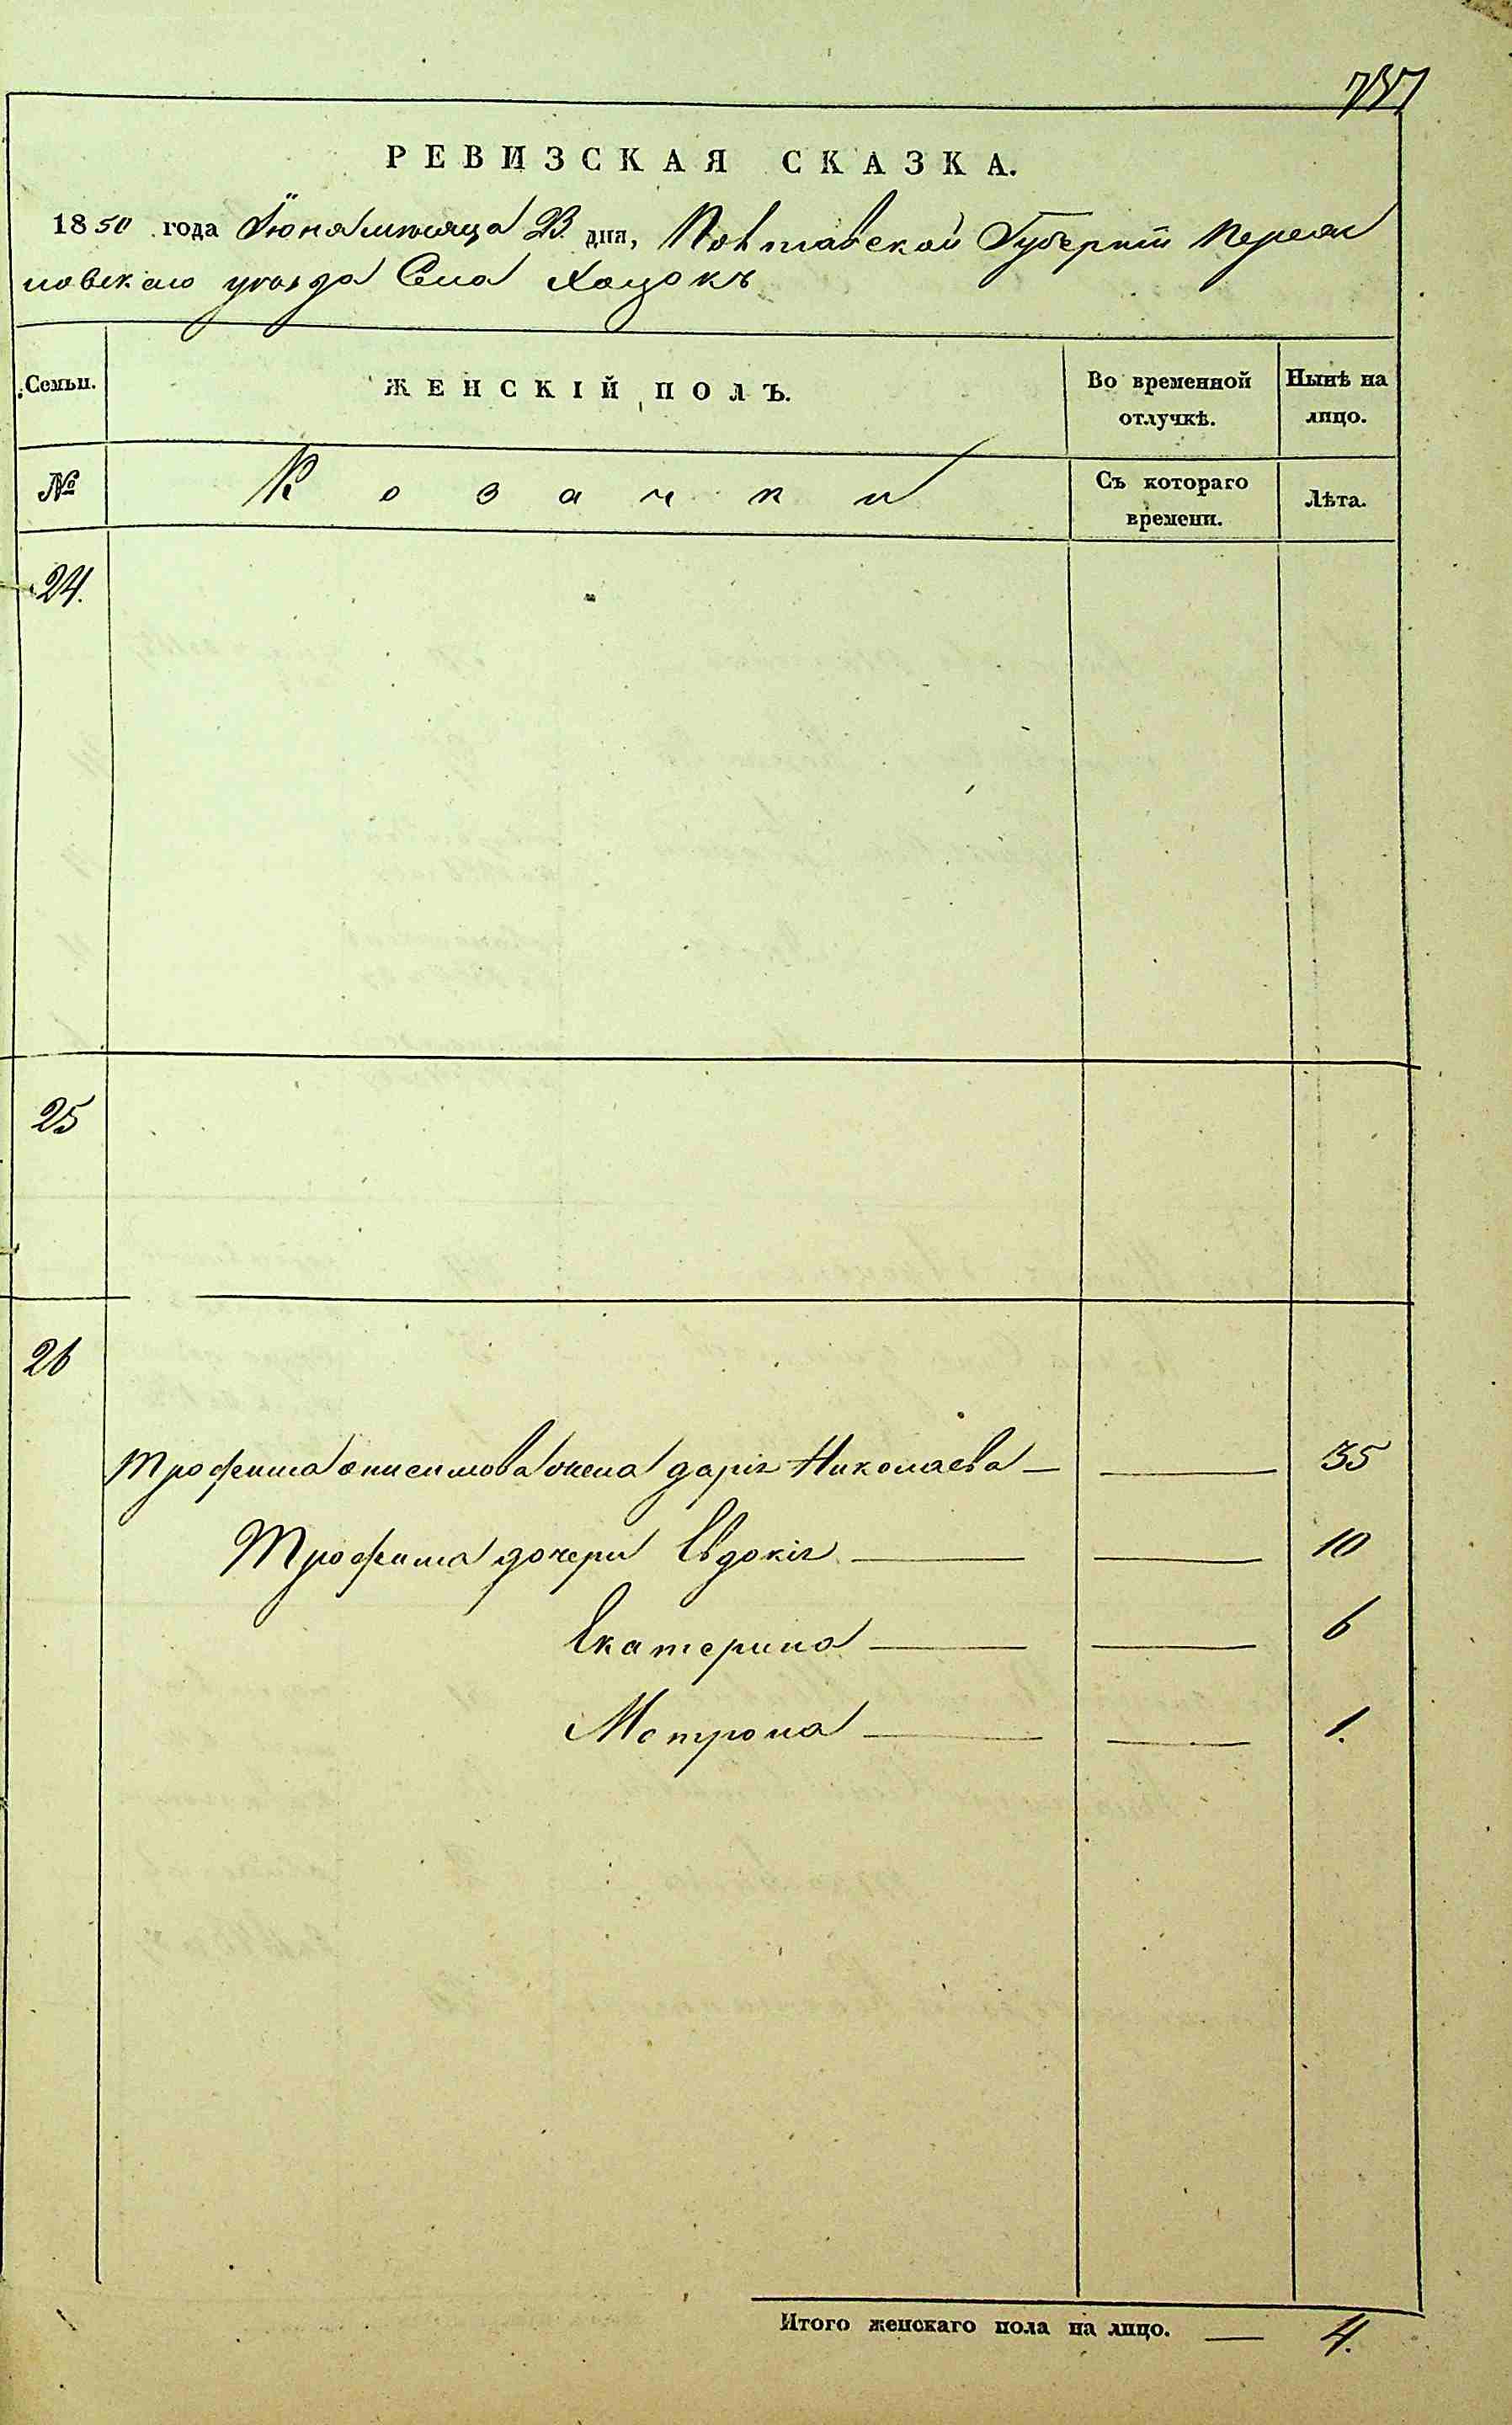 737
РЕВИЗСКАЯ СКАЗКА.
1850 года Іюня мѣсяца 23 дня, Полтавской Губерніи Переяс
ловскаго уѣзда Села Хацокъ
Семьи.
ЖЕНСКІЙ ПОЛЪ.
Во временной
отлучкѣ.
Нынѣ на
лицо.
№
Козачки
Съ котораго
времени.
Лѣта.
24.
25
26
Трофима Анисимова жена Дарія Николаева — — 35
Трофима дочери Евдокія — — 10
Екатерина — — 6
Мотрона — — 1.
Итого женскаго пола на лицо. — 4.